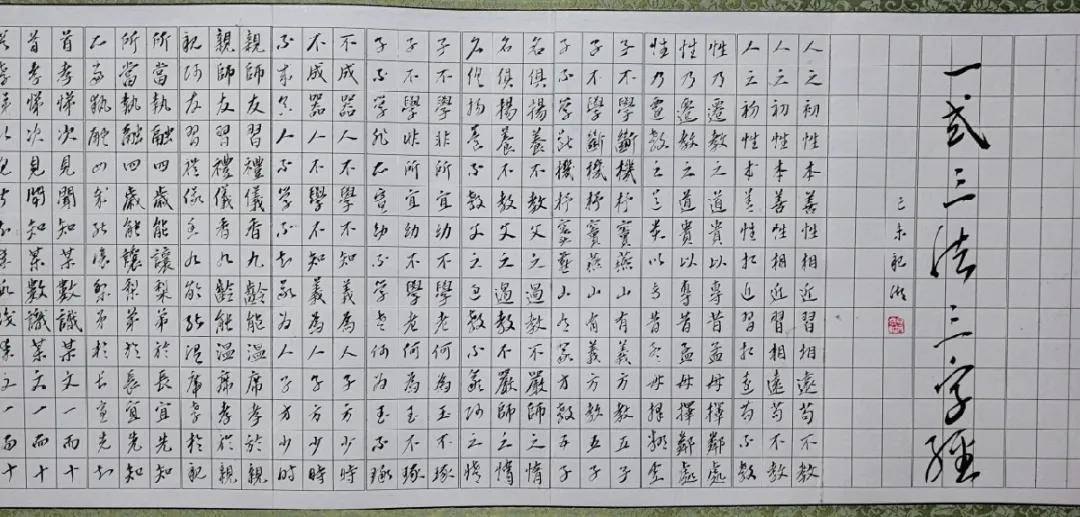 一式三法三字經
己未
人之初性本善性相近習相遠苟不教
人之初性本善性相近習相遠苟不教
人之初性本善性相近習相遠苟不教
性乃遷教之道貴以專昔孟母擇鄰處
性乃遷教之道貴以專昔孟母擇鄰處
性乃遷教之道貴以專昔孟母擇鄰處
子不學斷機杼竇燕山有義方教五子
子不學斷機杼竇燕山有義方教五子
子不學斷機杼竇燕山有義方教五子
名俱揚養不教父之過教不嚴師之惰
名俱揚養不教父之過教不嚴師之惰
名俱揚養不教父之過教不嚴師之惰
子不學非所宜幼不學老何為玉不琢
子不學非所宜幼不學老何為玉不琢
子不學非所宜幼不學老何為玉不琢
不成器人不學不知義為人子方少時
不成器人不學不知義為人子方少時
不成器人不學不知義為人子方少時
親師友習禮儀香九齡能溫席孝於親
親師友習禮儀香九齡能溫席孝於親
親師友習禮儀香九齡能溫席孝於親
所當執融四歲能讓梨弟於長宜先知
所當執融四歲能讓梨弟於長宜先知
所當執融四歲能讓梨弟於長宜先知
首孝悌次見聞知某數識某文一而十
首孝悌次見聞知某數識某文一而十